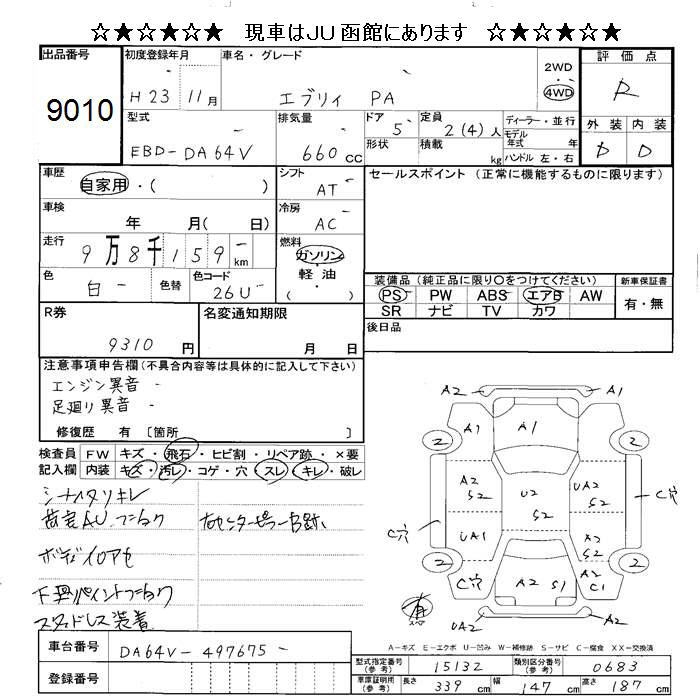 ☆★☆★☆★ 現車はJU函館にあります ☆★☆★☆★
出品番号 初度登録年月 車名・グレード 評価点
9010 H23 11月 エブリィ PA 2WD 4WD R
型式 排気量 ドア 定員 ディーラー・並行 外装 内装
EBD-DA64V 660CC 5 2(4)人 モデル年式 年式 D D
形状 積載 kg ハンドル 左・右
車歴 シフト セールスポイント (正常に機能するものに限ります)
自家用・( ) AT
車検 冷房
年 月( 日) AC
走行 燃料
9万8千159km ガソリン
色 色替 色コード 軽油
白 26U ( )
装備品(純正品に限り○をつけてください) 新車保証書
PS PW ABS エアB AW 有・無
SR ナビ TV カワ
R券 名変通知期限 後日品
9310円 月 日
注意事項申告欄(不具合内容等は具体的に記入して下さい)
エンジン異音
足廻り異音
修復歴 有 〔箇所 〕
検査員 FW キズ・飛石・ヒビ割・リペア跡・×要
記入欄 内装 キズ・汚レ・コゲ・穴・スレ・キレ・破レ
シナイタリキレ
荷室AU.
ボディイロアセ
下廻りペイント
スタッドレス装着
A2 A1
A1 A1
2 2
A2 S2 U2 S2 UA2 S2
C穴 C穴
UA1 A2 S2
2 2
C穴 A2 S1 A2 C1
有 スペア UA2 A2
A-キズ E-エクボ U-凹み W-補修跡 S-サビ C-腐食 XX-交換済
車台番号 DA64V-497675
登録番号
型式指定番号(参考) 15132 類別区分番号(参考) 0683
車庫証明用(参考) 長さ 339cm 幅 147cm 高さ 187cm